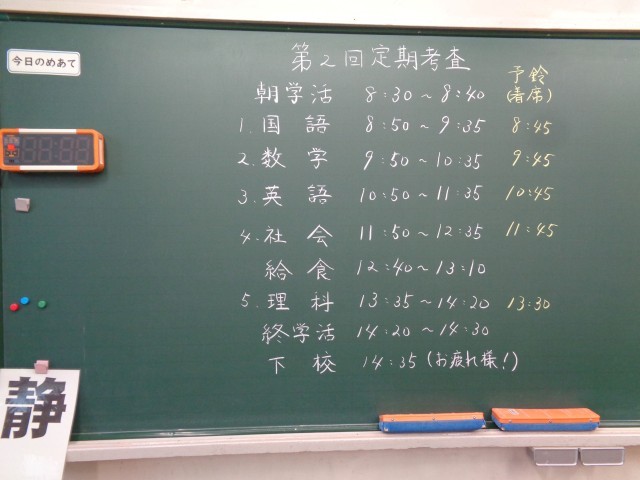 今日のめあて
第2回定期考査
予鈴
朝学活 8:30～8:40 (着席)
1.国語 8:50～9:35 8:45
2.数学 9:50～10:35 9:45
3.英語 10:50～11:35 10:45
4.社会 11:50～12:35 11:45
給食 12:40～13:10
5.理科 13:35～14:20 13:30
終学活 14:20～14:30
下校 14:35(お疲れ様!)
静